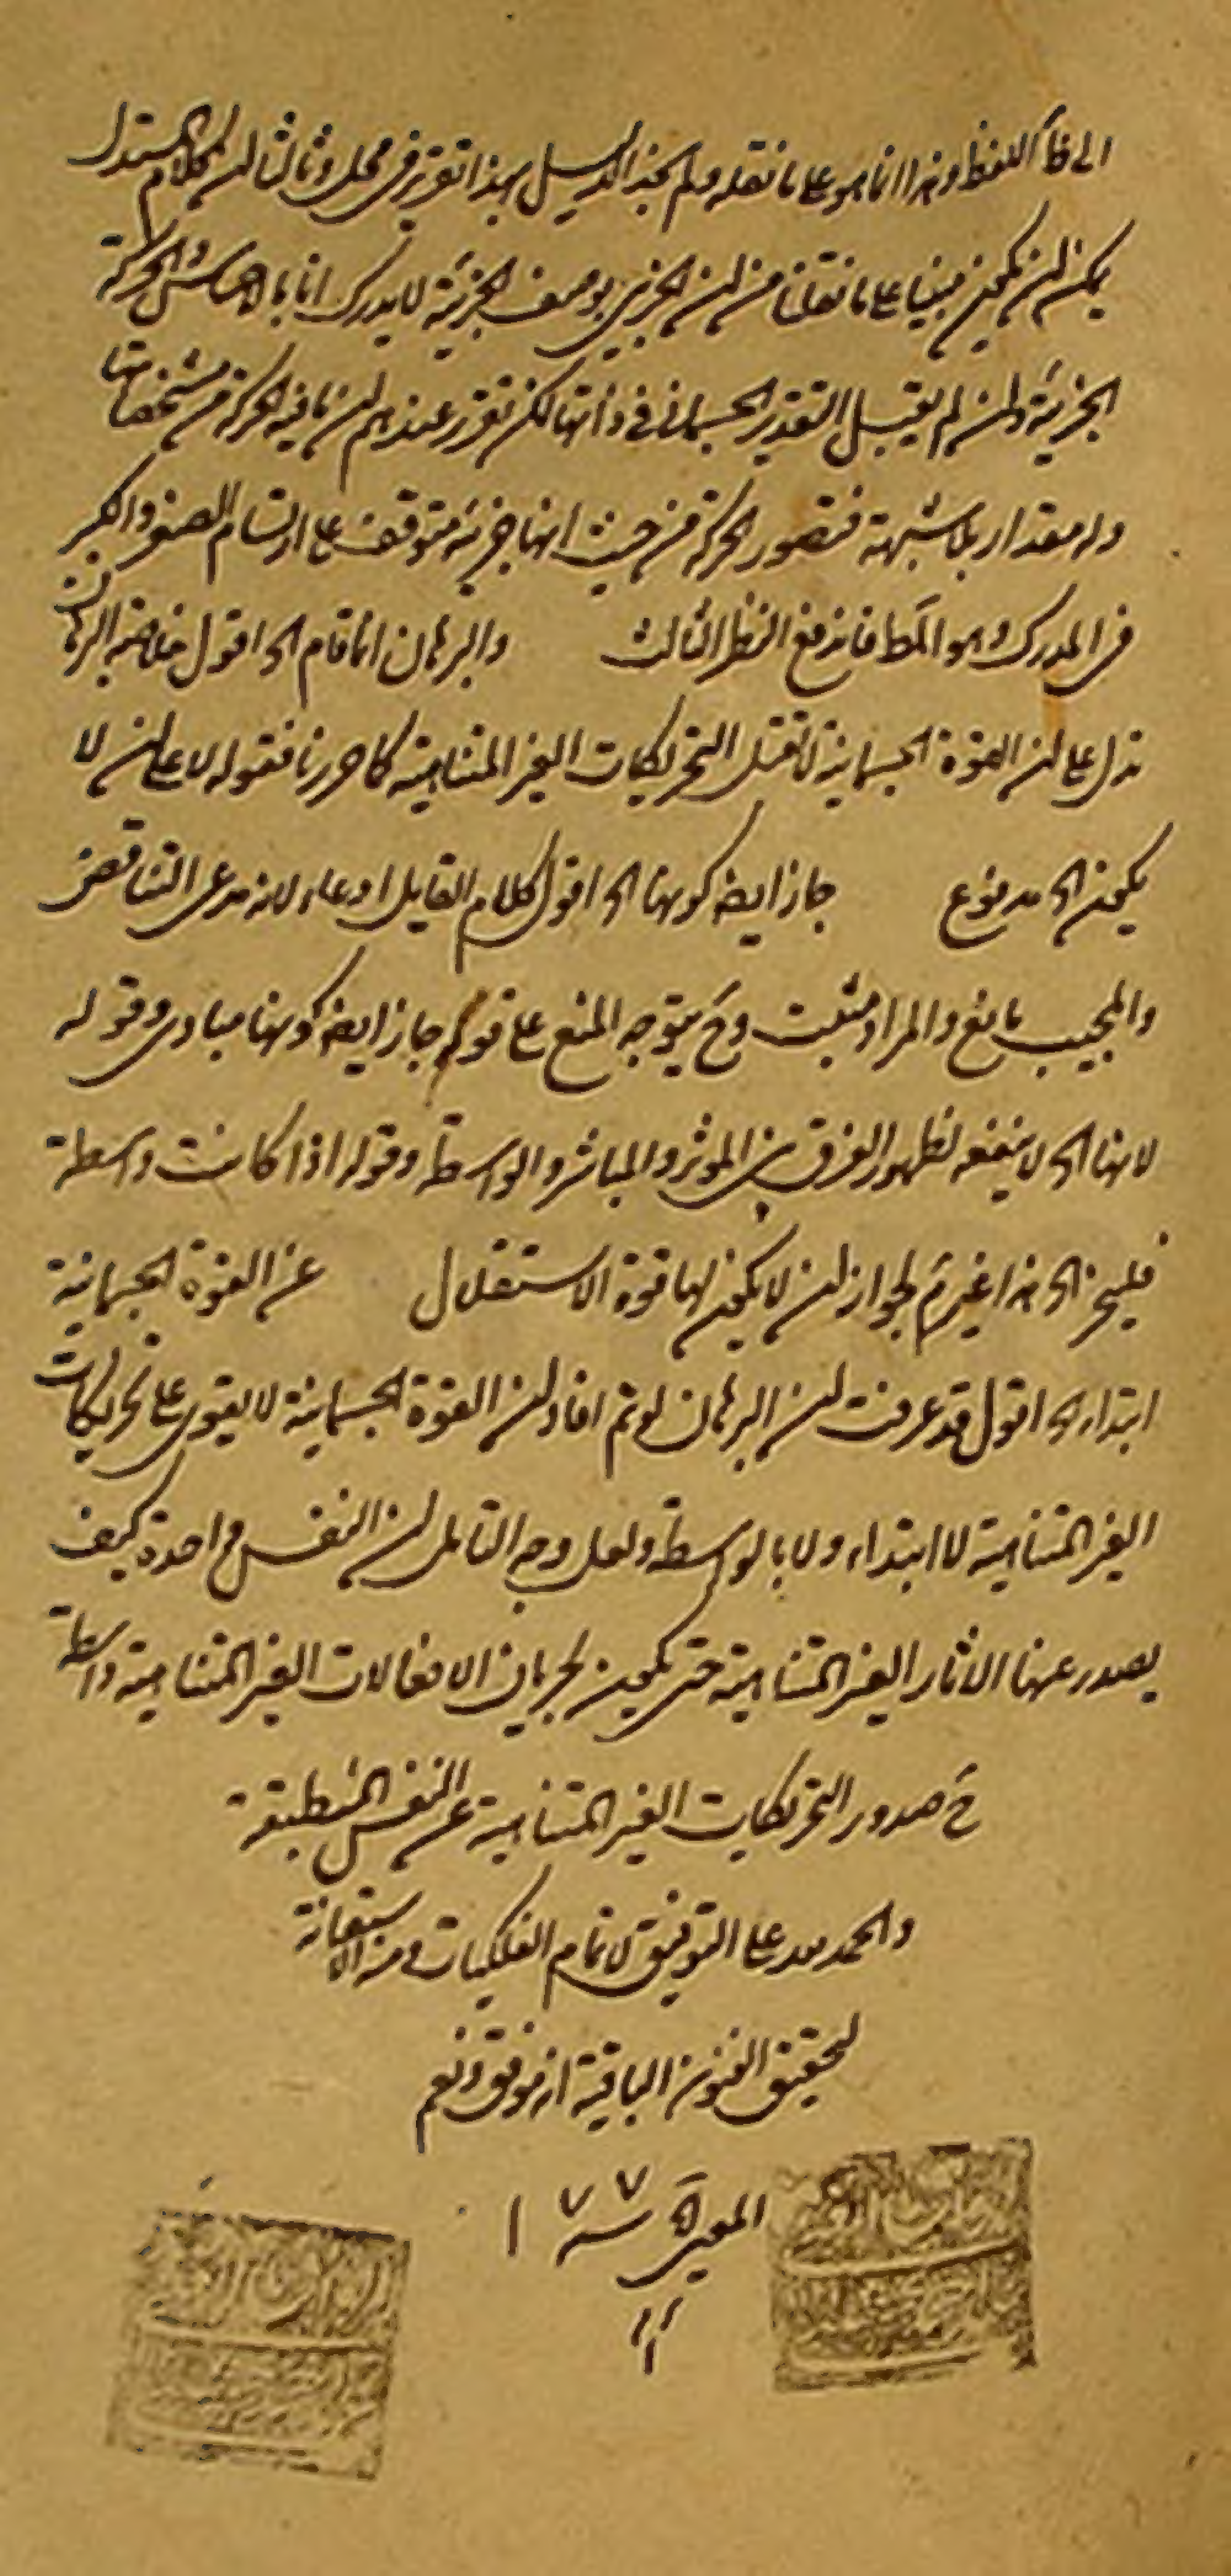 اللفظ وهذا انما هو على ما نقله ولم بهذا تقرير فى محله وثالثا ان كلام المستدل
يمكن ان يكون مبنيا على ما نقلنا من ان الجزئى بوصف الجزئية لا يدرك انا بالاحساس والحركة
الجزئية وان لم يقبل التقدير الجسمانى فى ذاتها لكن تقرر عندهم ان ما فيه الحركة من مشخصاتها
وله مقدار بلا شبهة فتصور الحركة من حيث انها جزئية متوقف على ارتسام الصغر والكبر
فى المدرك وهو المط فاندفع النظر الثالث والبرهان انما قام الخ اقول خلاصة البرهان
تدل على ان القوة الجسمانية لا تقبل التحريكات الغير المتناهية كما حررنا فقوله لا على ان لا
يكون الخ مدفوع جاز ايضا كونها الخ اقول كلام القايل ادعاء لانه مدعى التناقض
والمجيب مانع والمراد مثبت وح يتوجه المنع على قوله جاز ايضا كونها مبادى وقوله
لانها الخ لا ينفعه لظهور الفرق بين الموثر والمباشر والواسطة وقوله اذا كانت واسطة
الخ هذا غير تم لجواز ان لا يكون لها قوة الاستقلال عن القوة الجسمانية
ابتداء الخ اقول قد عرفت ان البرهان لو تم افاد ان القوة الجسمانية لا يقوى على تحريكات
الغير المتناهية لا ابتداء ولا بالواسطة ولعل وجه التامل ان النفس واحدة كيف
يصدر عنها الاثار الغير المتناهية حتى يكون لجريان الانفعالات الغير المتناهية واسطة
ح صدور التحريكات الغير المتناهية عن النفس المنطبعة
والحمد لله على التوفيق لاتمام الفلكيات ومنه الاستعانة
لتحقيق الفنون الباقية انه موفق ونعم
المعين سنة ١١٧٧